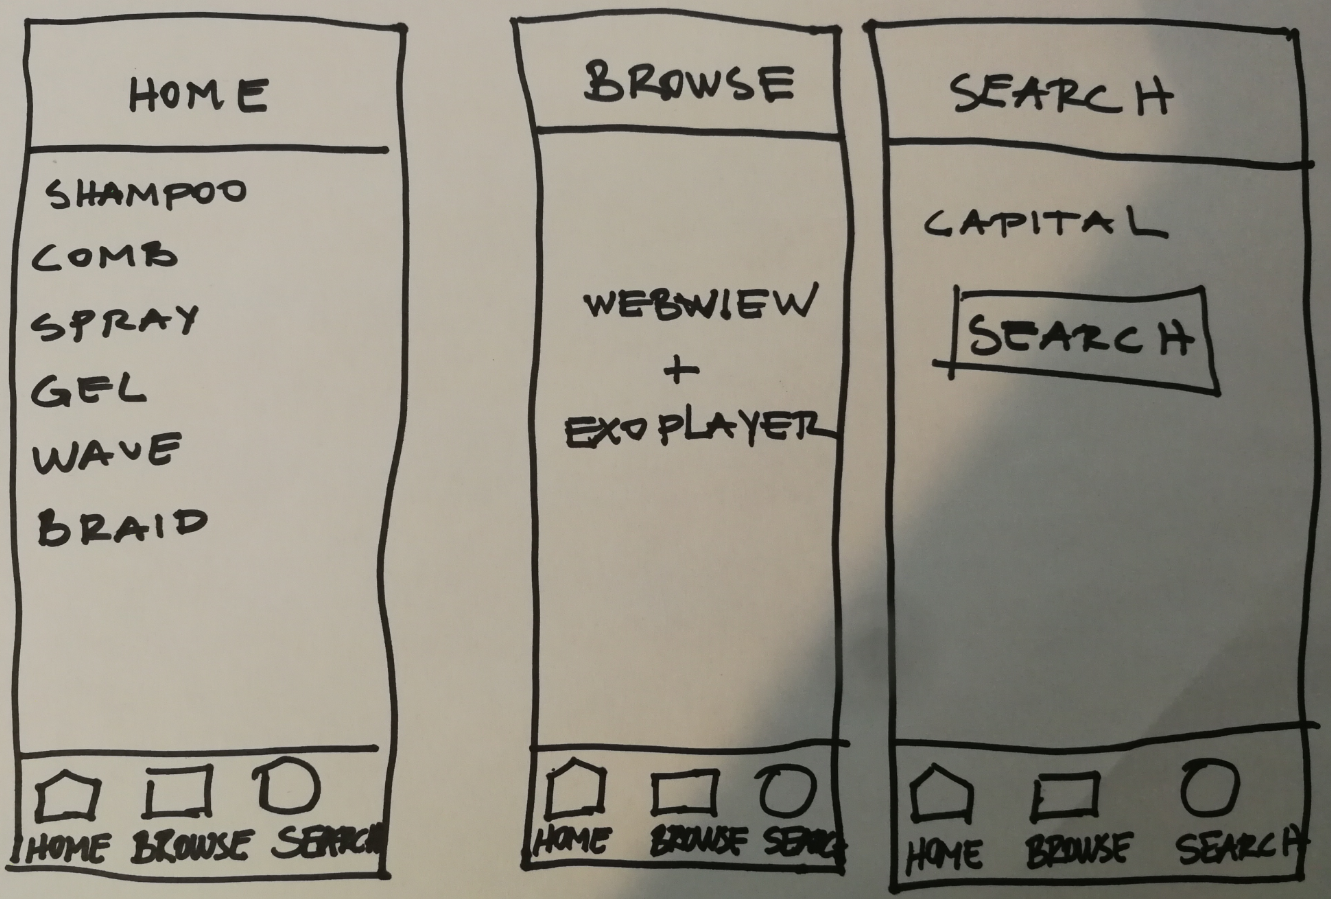 HOME
SHAMPOO
COMB
SPRAY
GEL
WAVE
BRAID
HOME BROWSE SEARCH
BROWSE
WEBWIEW
+
EXOPLAYER
HOME BROWSE SEARCH
SEARCH
CAPITAL
SEARCH
HOME BROWSE SEARCH